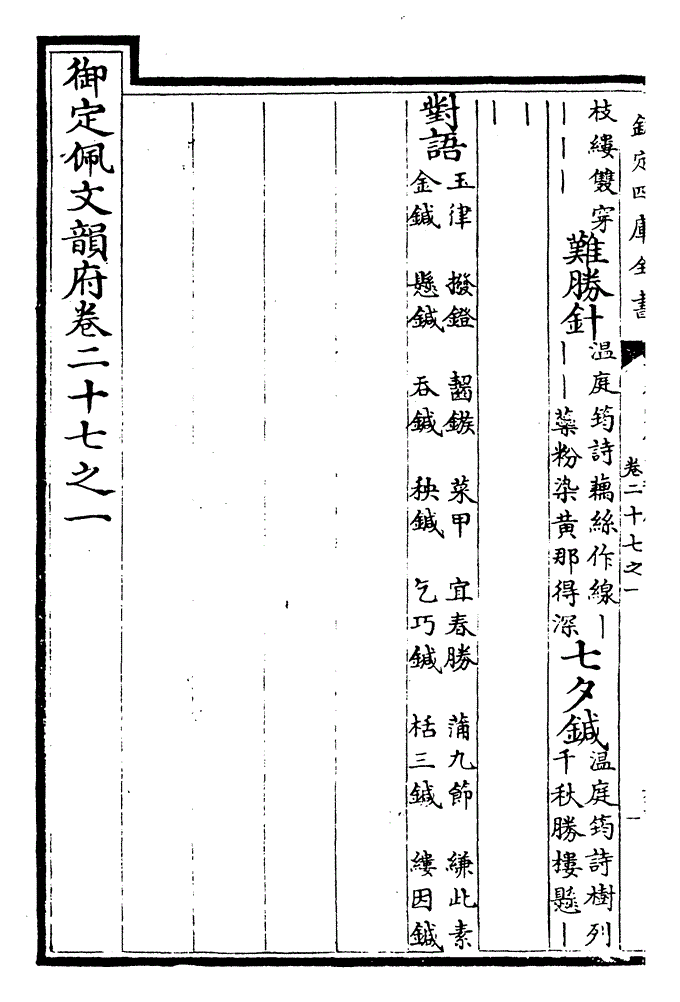 欽定四庫全書 卷二十七之一
枝縷雙穿
｜｜｜｜
難勝針
温庭筠詩藕絲作線｜
｜｜蘂粉染黄那得深
七夕鍼
温庭筠詩樹列
千秋勝樓懸｜
｜
｜
對語
玉律 撥鐙 齧鏃 菜甲 宜春勝 蒲九節 縑此素
金鍼 懸鍼 吞鍼 秧鍼 乞巧鍼 栝三鍼 縷因鍼
御定佩文韻府卷二十七之一